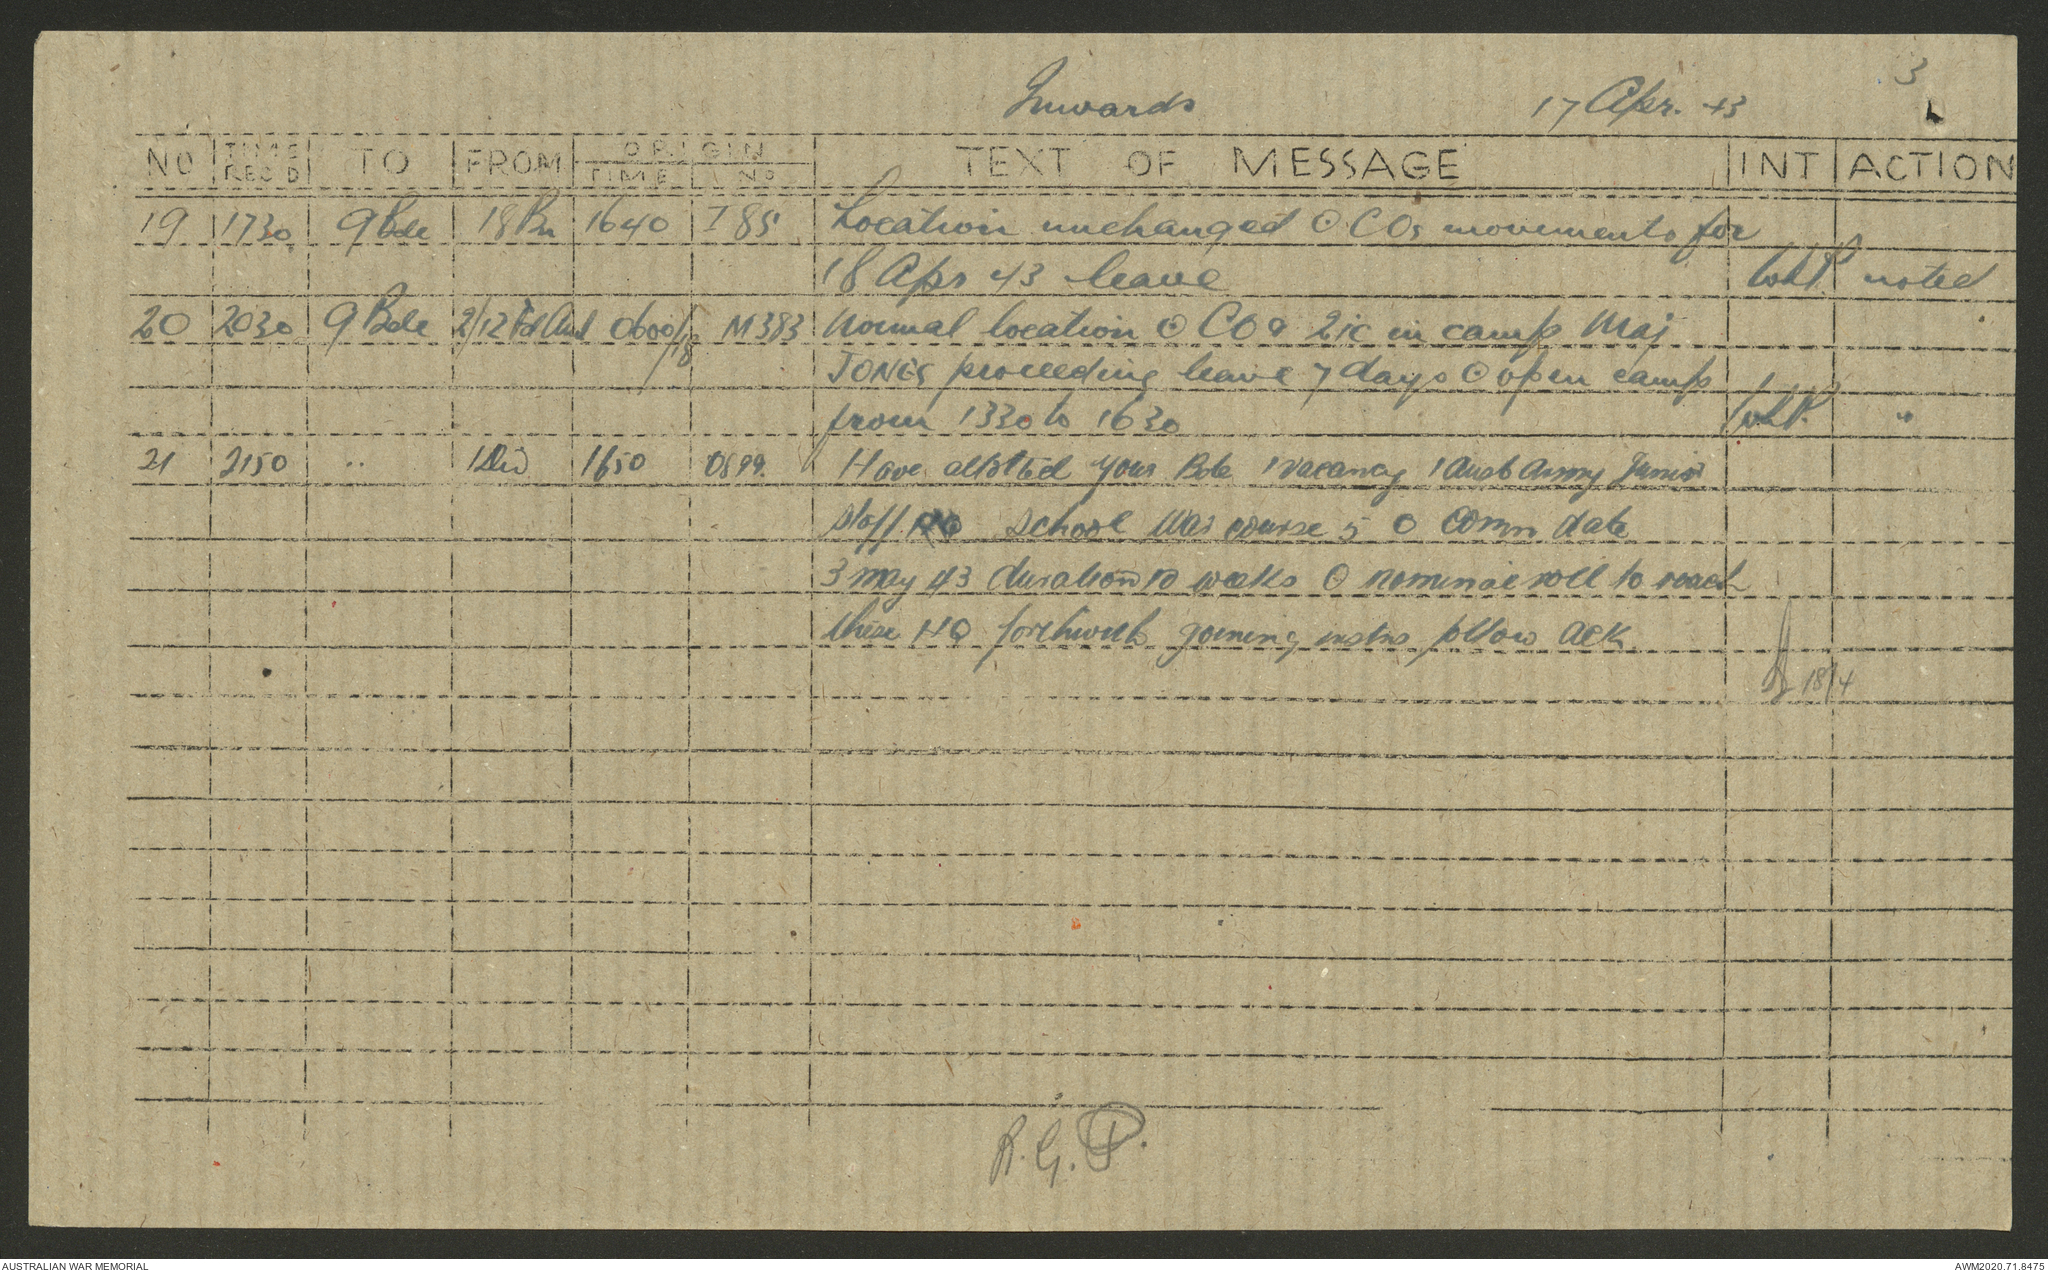 3
Inwards 17 Apr. 43
NO TIME REC'D TO FROM ORIGIN TIME NO TEXT OF MESSAGE INT ACTION
19 1730 9 Bde 18 Bn 1640 I 85 Location unchanged ⊙ COs movements for
18 Apr 43 leave noted
20 2030 9 Bde 2/12 Fd Amb 0600/18 M383 Normal location ⊙ CO & 2ic in camp Maj
JONES proceeding leave 7 days ⊙ open camp
from 1330 to 1630 "
21 2150 " 1 Div 1650 0899 Have allotted your Bde 1 vacancy 1 Aust Army Junior
staff school War course 5 ⊙ Comn date
3 may 43 duration 10 weeks ⊙ nominal roll to reach
these HQ forthwith joining instns follow ack
18/4
R.G.P.
AUSTRALIAN WAR MEMORIAL AWM2020.71.8475